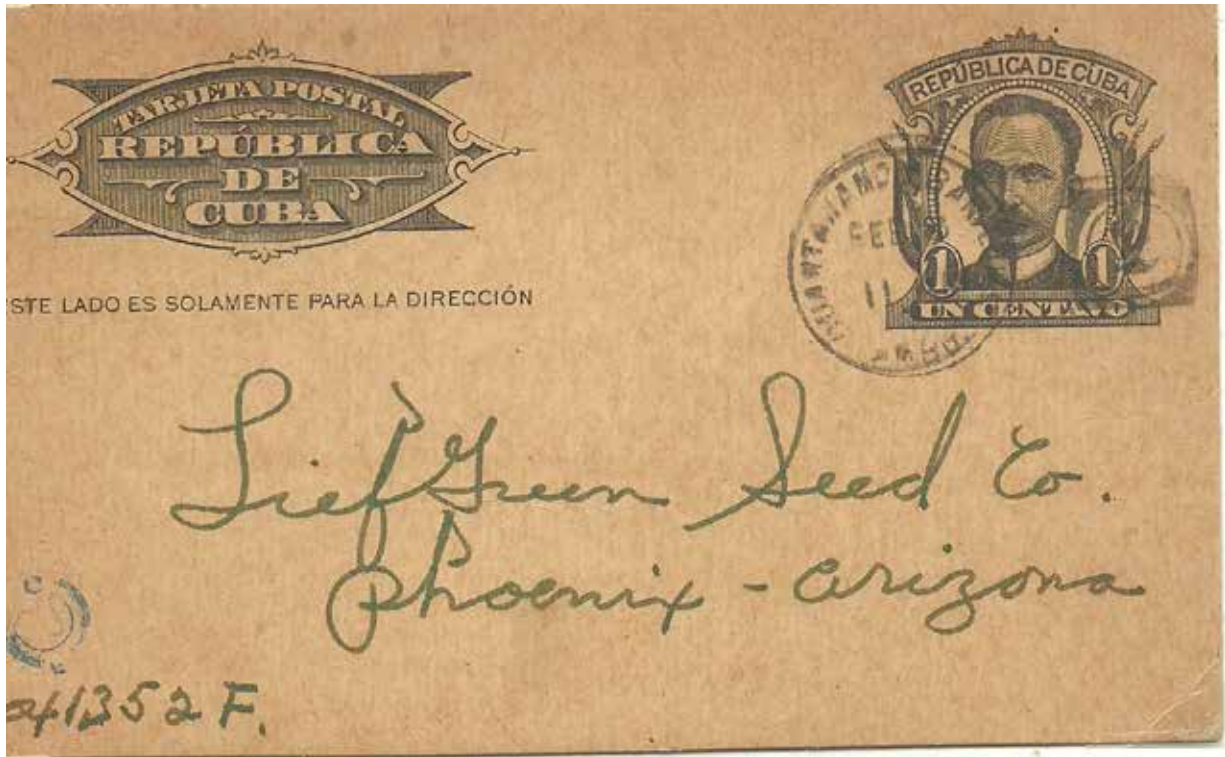 TARJETA POSTAL
REPÚBLICA
DE
CUBA
REPÚBLICA DE CUBA
1 1
UN CENTAVO
FEB
11
STE LADO ES SOLAMENTE PARA LA DIRECCIÓN
Lief Green Seed Co.
Phoenix - Arizona
41352 F.